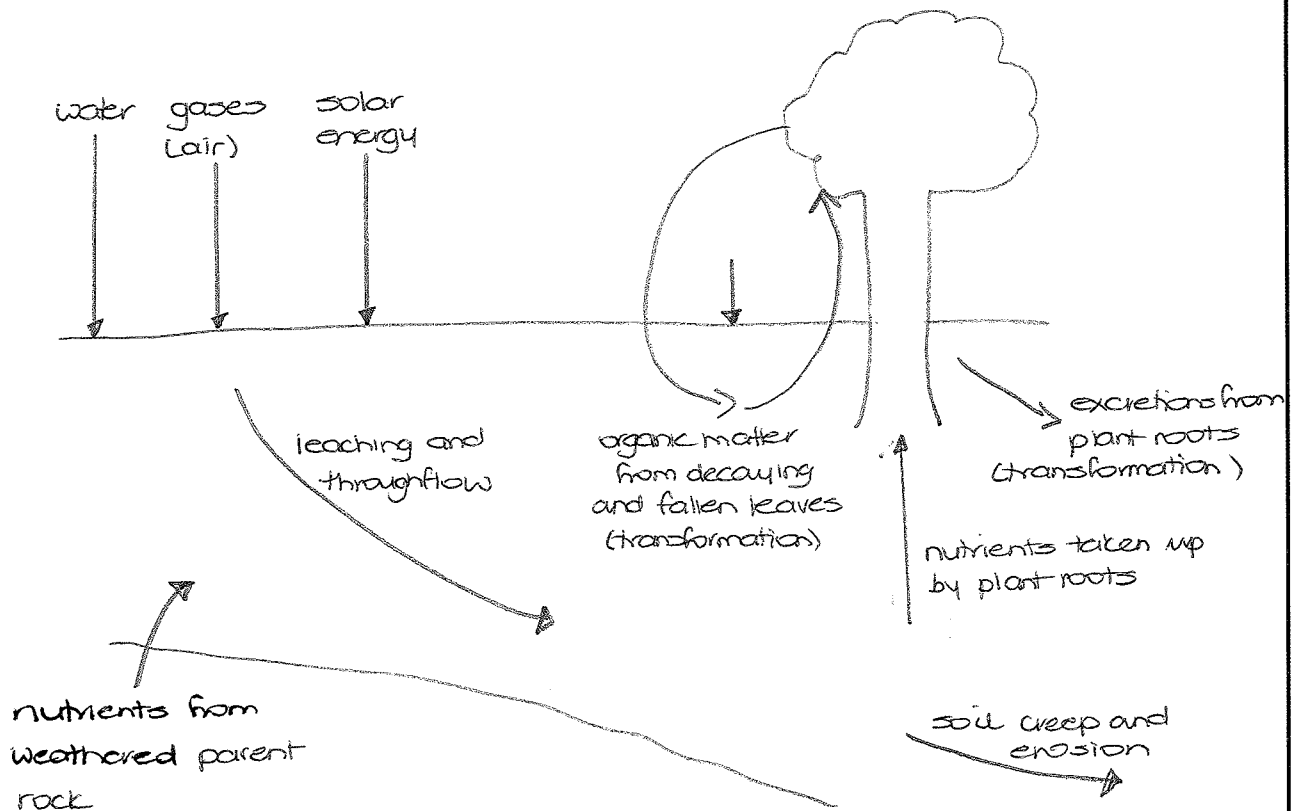 water
gases
(air)
solar
energy
leaching and
throughflow
organic matter
from decaying
and fallen leaves
(transformation)
excretions from
plant roots
(transformation)
nutrients taken up
by plant roots
nutrients from
weathered parent
rock
soil creep and
erosion